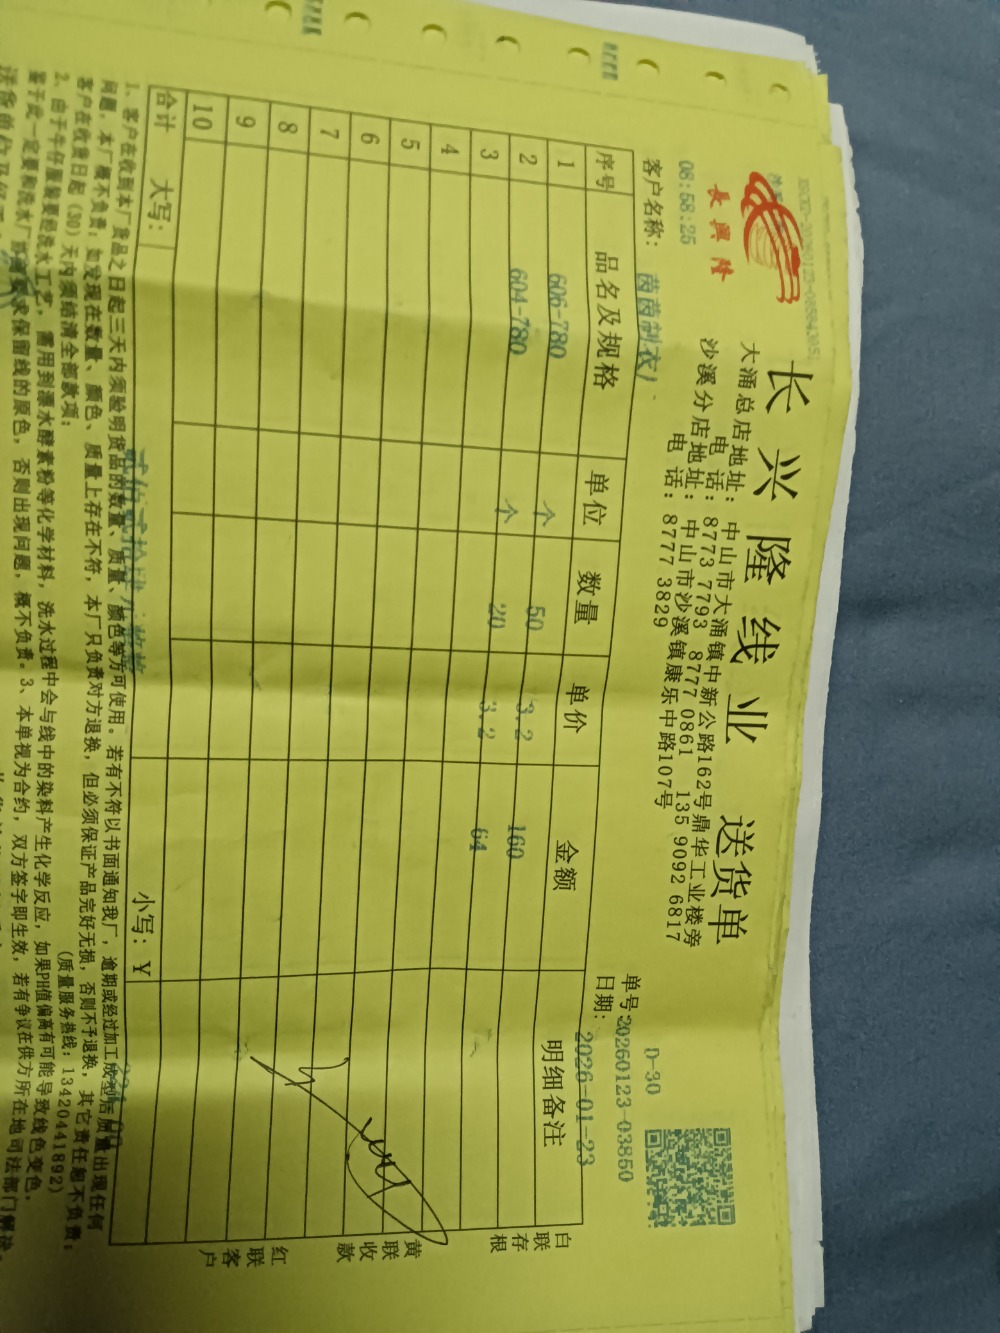 長興隆
长兴隆线业 送货单
大涌总店地址：中山市大涌镇中新公路162号鼎华工业楼旁
电 话：8773 7793 8777 0861 135 9092 6817
沙溪分店地址：中山市沙溪镇康乐中路107号
电 话：8777 3829
08:58:25
D-30
单号:20260123-03850
客户名称：茵茵制衣）
日期：2026-01-23
序号 品名及规格 单位 数量 单价 金额 明细备注
1 606-780 个 50 3.2 160
2 604-780 个 20 3.2 64
3
4
5
6
7
8
9
10
合计 大写： 小写：¥
白联存根
黄联收款
红联客户
1、客户在收到本厂货品之日起三天内须验明货品的数量、质量、颜色等方可使用。若有不符以书面通知我厂，逾期或经过加工成型后质量出现任何
问题，本厂概不负责；如发现在数量、颜色、质量上存在不符，本厂只负责对方退换，但必须保证产品完好无损，否则不予退换，其它责任恕不负责；
客户在收货日起（30）天内须结清全部款项； （质量服务热线：13420441892）
2、由于牛仔服装要经洗水工艺，需用到漂水酵素粉等化学材料，洗水过程中会与线中的染料产生化学反应，如果PH值偏高有可能导致线色变色，
鉴于此一定要和洗水厂 求保留线的原色，否则出现问题，概不负责。3、本单视为合约，双方签字即生效，若有争议在供方所在地司法部门解决。